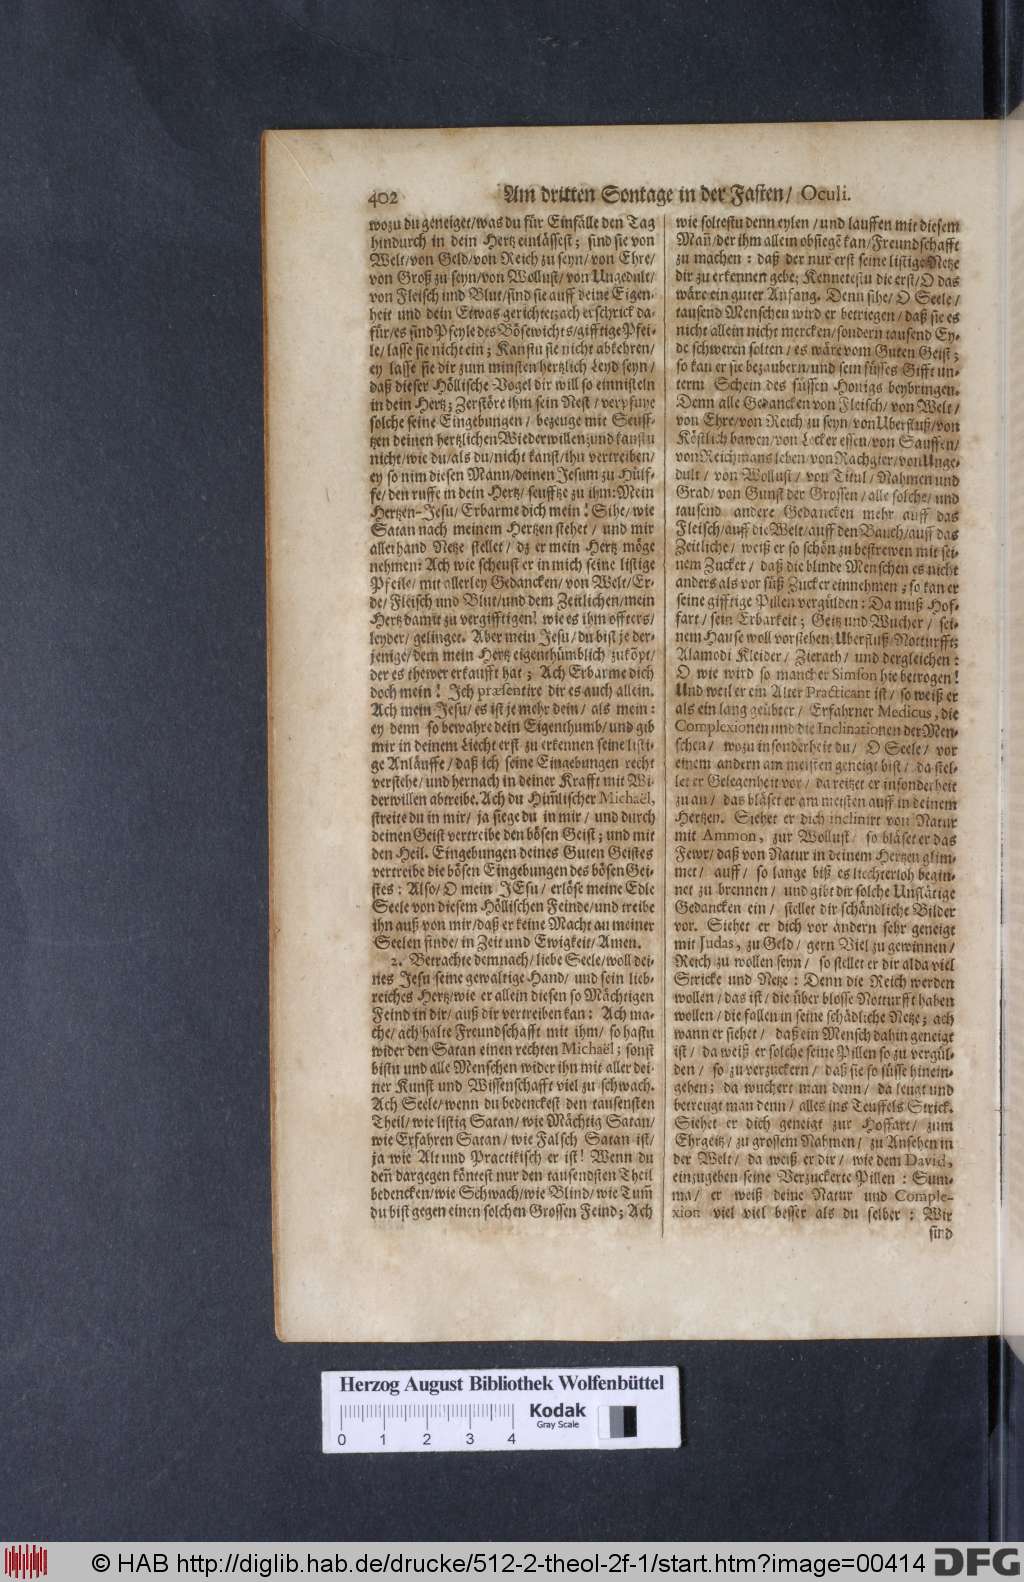 402 Am dritten Sontage in der Fasten/ Oculi.
wozu du geneiget/was du für Einfälle den Tag
hindurch in dein Hertz einlässest; sind sie von
Welt/von Geld/von Reich zu seyn/von Ehre/
von Groß zu seyn/von Wollust/von Ungedult/
von Fleisch und Blut/sind sie auff deine Eigen-
heit und dein Etwas gerichtet: ach erschrick da-
für/es sind Pfeyle des Bösewichts/gifftige Pfei-
le/ lasse sie nicht ein; Kanstu sie nicht abkehren/
ey lasse sie dir zum minsten hertzlich Leyd seyn/
daß dieser Höllische Vogel dir will so einnisteln
in dein Hertz; Zerstöre ihm sein Nest/ verpfuye
solche seine Eingebungen/ bezeuge mit Seuff-
tzen deinen hertzlichen Wiederwillen: und kanstu
nicht/wie du/als du/nicht kanst/ihn vertreiben/
ey so nim diesen Mann/deinen Jesum zu Hülf-
fe/ den ruffe in dein Hertz/ seufftze zu ihm: Mein
Hertzen-Jesu/ Erbarme dich mein! Sihe/ wie
Satan nach meinem Hertzen stehet/ und mir
allerhand Netze stellet/ dz er mein Hertz möge
nehmen: Ach wie scheust er in mich seine listige
Pfeile/ mit allerley Gedancken/ von Welt/Er-
de/ Fleisch und Blut/und dem Zeitlichen/mein
Hertz damit zu vergifftigen! wie es ihm offters/
leyder/ gelinget. Aber mein Jesu/ du bist je der-
jenige/dem mein Hertz eigenthümblich zuköpt/
der es thewer erkaufft hat; Ach Erbarme dich
doch mein! Ich præsentire dir es auch allein.
Ach mein Jesu/ es ist je mehr dein/ als mein:
ey denn so bewahre dein Eigenthumb/und gib
mir in deinem Liecht erst zu erkennen seine listi-
ge Anläuffe/ daß ich seine Eingebungen recht
verstehe/ und hernach in deiner Krafft mit Wi-
derwillen abtreibe. Ach du Him̃lischer Michaël,
streite du in mir/ ja siege du in mir/ und durch
deinen Geist vertreibe den bösen Geist; und mit
den Heil. Eingebungen deines Guten Geistes
vertreibe die bösen Eingebungen des bösen Gei-
stes: Also/ O mein JEsu/ erlöse meine Edle
Seele von diesem Höllischen Feinde/und treibe
ihn auß von mir/daß er keine Macht an meiner
Seelen finde/ in Zeit und Ewigkeit/ Amen.
2. Betrachte demnach/ liebe Seele/woll dei-
nes Jesu seine gewaltige Hand/ und sein lieb-
reiches Hertz/wie er allein diesen so Mächtigen
Feind in dir/ auß dir vertreiben kan: Ach ma-
che/ach halte Freundschafft mit ihm/ so hastu
wider den Satan einen rechten Michaël; sonst
bistu und alle Menschen wider ihn mit aller dei-
ner Kunst und Wissenschafft viel zu schwach.
Ach Seele/wenn du bedenckest den tausensten
Theil/wie listig Satan/wie Mächtig Satan/
wie Erfahren Satan/wie Falsch Satan ist/
ja wie Alt und Practikisch er ist! Wenn du
deñ dargegen köntest nur den tausendsten Theil
bedencken/wie Schwach/wie Blind/wie Tum̃
du bist gegen einen solchen Grossen Feind; Ach
wie soltestu denn eylen/und lauffen mit diesem
Mañ/der ihm allein obsiegẽ kan/Freundschafft
zu machen: daß der nur erst seine listige Netze
dir zu erkennen gebe; Kennetestu die erst/ O das
wäre ein guter Anfang. Denn sihe/ O Seele/
tausend Menschen wird er betriegen/ daß sie es
nicht allein nicht mercken/sondern tausend Ey-
de schweren solten/ es wäre vom Guten Geist;
so kan er sie bezaubern/und sein süsses Gifft un-
term Schein des süssen Honigs beybringen.
Denn alle Gedancken von Fleisch/ von Welt/
von Ehre/von Reich zu seyn/ von Uberfluß/von
Köstlich bawen/von Lecker essen/von Sauffen/
von Reichmans leben/von Rachgier/von Unge-
dult/ von Wollust/ von Titul/ Nahmen und
Grad/ von Gunst der Grossen/ alle solche/ und
tausend andere Gedancken mehr auff das
Fleisch/auff die Welt/auff den Bauch/auff das
Zeitliche/ weiß er so schön zu bestrewen mit sei-
nem Zucker/ daß die blinde Menschen es nicht
anders als vor süß Zucker einnehmen; so kan er
seine gifftige Pillen vergülden: Da muß Hof-
fart/ sein Erbarkeit; Geitz und Wucher/ sei-
nem Hause woll vorstehen; Uberfluß/Notturfft;
Alamodi Kleider/ Zierath/ und dergleichen:
O wie wird so mancher Simson hie betrogen!
Und weil er ein Alter Practicant ist/ so weiß er
als ein lang geübter/ Erfahrner Medicus, die
Complexionen und die Inclinationen der Men-
schen/ wozu insonderheit du/ O Seele/ vor
einem andern am meisten geneigt bist/ da stel-
let er Gelegenheit vor/ da reitzet er insonderheit
zu an/ das bläset er am meisten auff in deinem
Hertzen. Siehet er dich inclinirt von Natur
mit Ammon, zur Wollust/ so bläset er das
Fewr/ daß von Natur in deinem Hertzen glim-
met/ auff/ so lange biß es liechterloh begin-
net zu brennen/ und gibt dir solche Unflätige
Gedancken ein/ stellet dir schändliche Bilder
vor. Siehet er dich vor andern sehr geneigt
mit Judas, zu Geld/ gern Viel zu gewinnen/
Reich zu wollen seyn/ so stellet er dir alda viel
Stricke und Netze: Denn die Reich werden
wollen/ das ist/ die über blosse Notturfft haben
wollen/ die fallen in seine schädliche Netze; ach
wann er siehet/ daß ein Mensch dahin geneigt
ist/ da weiß er solche seine Pillen so zu vergül-
den/ so zu verzuckern/ daß sie so süsse hinein-
gehen; da wuchert man denn/ da leugt und
betreugt man denn/ alles ins Teuffels Strick.
Siehet er dich geneigt zur Hoffart/ zum
Ehrgeitz/ zu grossem Nahmen/ zu Ansehen in
der Welt/ da weiß er dir/ wie dem David,
einzugeben seine Verzuckerte Pillen: Sum-
ma/ er weiß deine Natur und Comple-
xion viel viel besser als du selber: Wir
sind
Herzog August Bibliothek Wolfenbüttel
Kodak
Gray Scale
0 1 2 3 4
© HAB http://diglib.hab.de/drucke/512-2-theol-2f-1/start.htm?image=00414 DFG